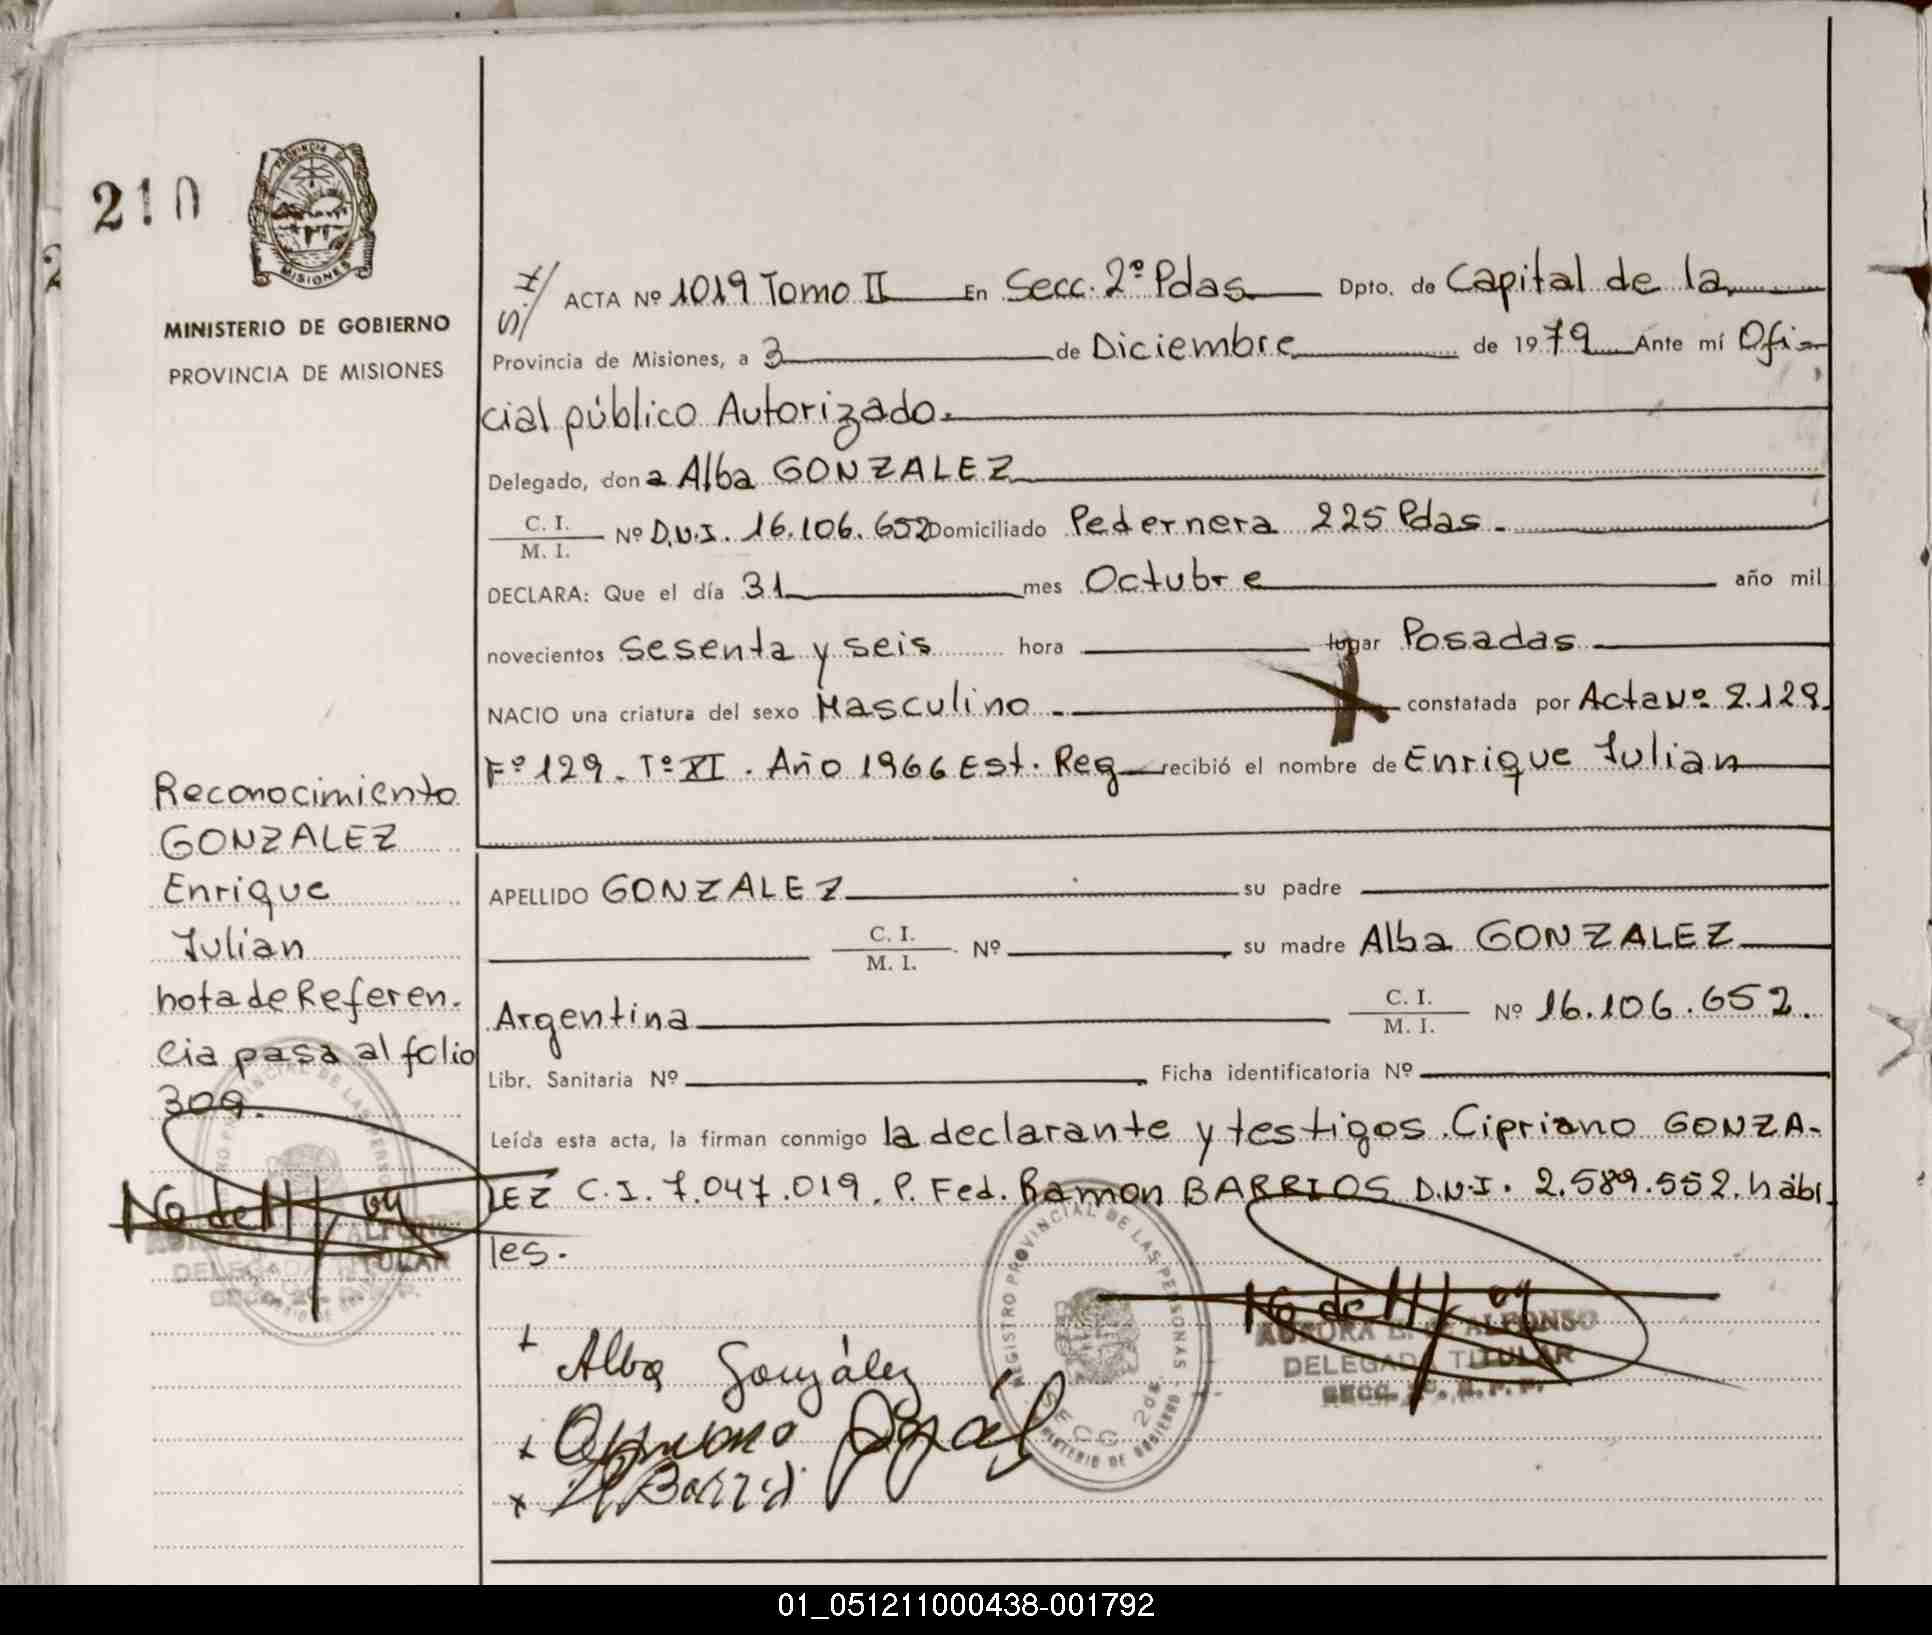 210
PROVINCIA DE
MISIONES
MINISTERIO DE GOBIERNO
PROVINCIA DE MISIONES
S.I/ ACTA Nº 1019 Tomo II En Secc. 2º Pdas Dpto. de Capital de la
Provincia de Misiones, a 3 de Diciembre de 1979 Ante mí Ofi-
cial público Autorizado.
Delegado, don a Alba GONZALEZ
C. I.
M. I. Nº D.N.I. 16.106.652 Domiciliado Pedernera 225 Pdas.
DECLARA: Que el día 31 mes Octubre año mil
novecientos sesenta y seis hora lugar Posadas
NACIO una criatura del sexo Masculino constatada por Acta Nº 2.129.
Fº 129. Tº XI. Año 1966 Est. Reg recibió el nombre de Enrique Julian
APELLIDO GONZALEZ su padre
C. I.
M. I. Nº su madre Alba GONZALEZ
Argentina C. I.
M. I. Nº 16.106.652.
Libr. Sanitaria Nº Ficha identificatoria Nº
Leída esta acta, la firman conmigo la declarante y testigos. Cipriano GONZA-
LEZ C.I. 7.047.019. P. Fed. Ramon BARRIOS D.N.I. 2.589.552. hábi
les.
Reconocimiento
GONZALEZ
Enrique
Julian
nota de Referen.
cia pasa al folio
309.
ALFONSO
DELEGADA TITULAR
+ Alba González
+ Cipriano
x Barrios
REGISTRO PROVINCIAL DE LAS PERSONAS
SECC 2da.
MINISTERIO DE GOBIERNO
AURORA ALFONSO
DELEGADA TITULAR
SECC. 2º. R. P. P.
01_051211000438-001792